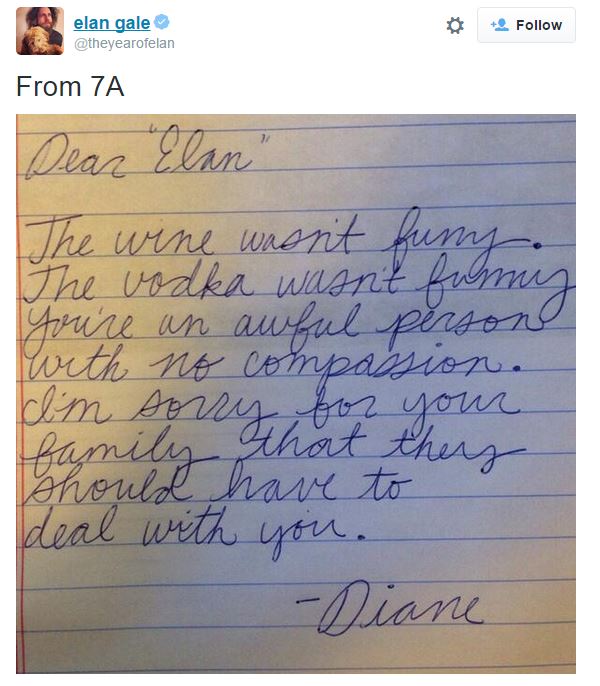 elan gale
@theyearofelan
Follow
From 7A
Dear "Elan"
The wine wasn't funny.
The vodka wasn't funny
You're an awful person
with no compassion.
I'm sorry for your
family that they
should have to
deal with you.
-Diane